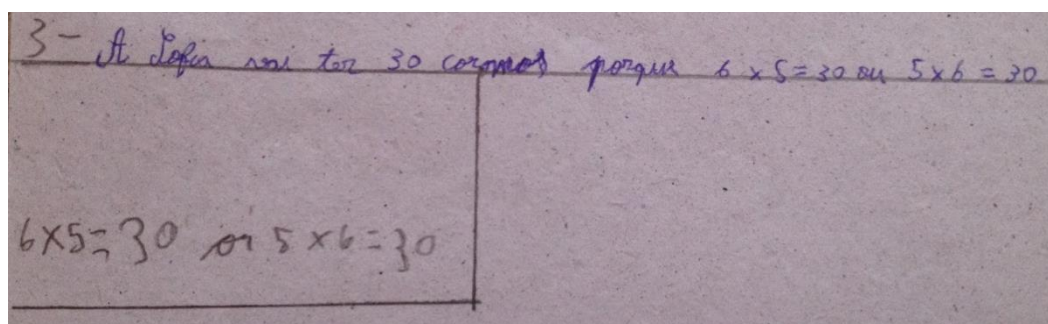 3- A Sofia vai ter 30 cromos porque 6 x 5 = 30 ou 5 x 6 = 30
6 x 5 = 30 ou 5 x 6 = 30